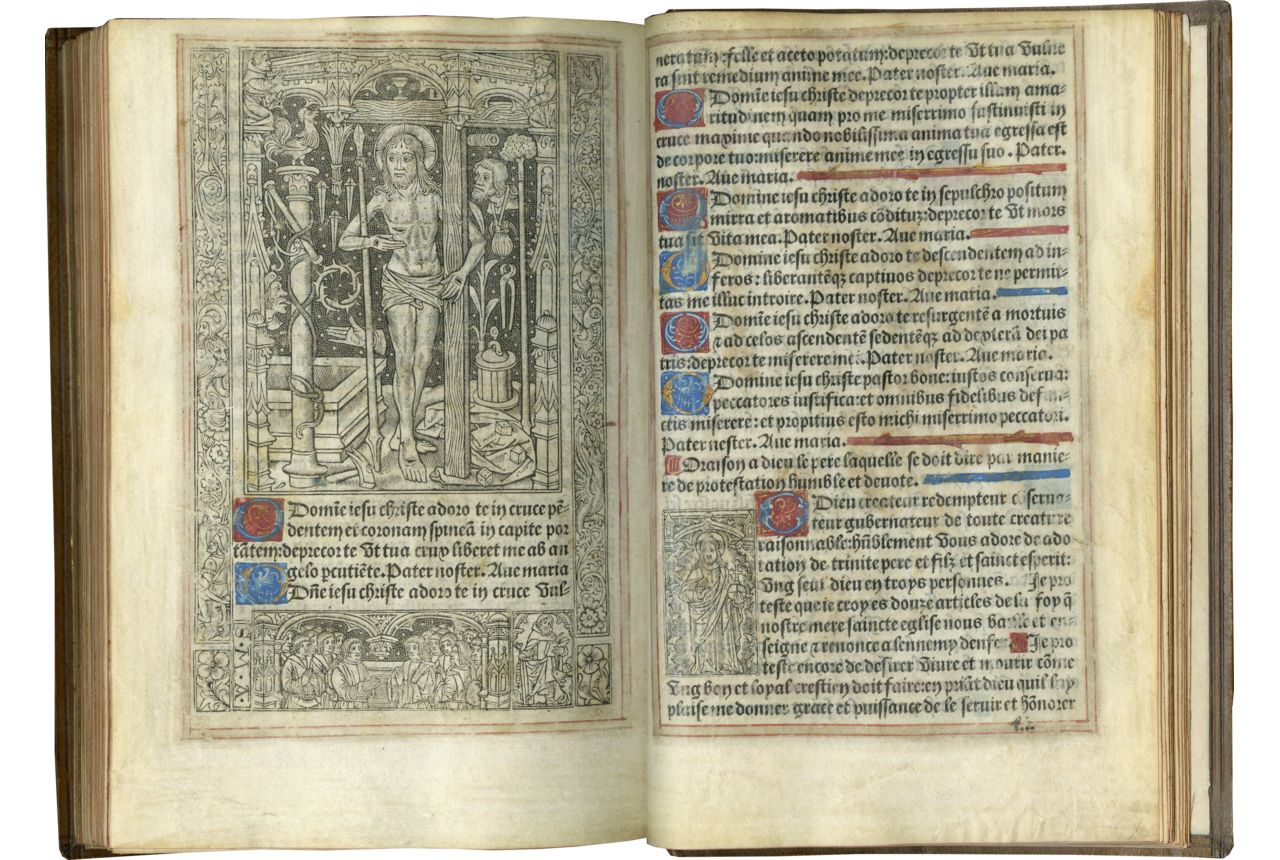 Domīe iesu christe adoro te in cruce pē-
dentem et coronam spineā in capite por
tātem:deprecor te Ut tua crux liberet me ab an
gelo pcutiēte. Pater noster. Aue maria
Dñe iesu christe adoro te in cruce Uul-
neratum: felle et aceto potatum:deprecor te Ut tua Uulne
ra sint remedium anime mee. Pater noster. Aue maria.
O Domīe iesu christe deprecor te propter illam ama-
ritudinem quam pro me miserrimo sustinuisti in
cruce maxime quando nobilissima anima tua egressa est
de corpore tuo:miserere anime mee in egressu suo. Pater.
noster. Aue maria.
O Domine iesu christe adoro te in sepulchro positum
mirra et aromatibus cōdituz:deprecor te Ut mors
tua sit Uita mea. Pater noster. Aue maria.
O Domine iesu christe adoro te descendentem ad in-
feros: liberantēqz captiuos deprecor te ne permit-
tas me illuc introire. Pater noster. Aue maria.
O Domīe iesu christe adoro te resurgentē a mortuis
⁊ ad celos ascendentē sedentēqz ad dexterā dei pa
tris:deprecor te miserere mei. Pater noster. Aue maria.
O Domine iesu christe pastor bone: iustos conserua:
peccatores iustifica:et omnibus fidelibus defun-
ctis miserere: et propitius esto michi miserrimo peccatori.
Pater noster. Aue maria.
Oraison a dieu le pere laquelle se doit dire par manie-
re de protestation humble et deuote.
O Dieu createur redempteur conserua-
teur gubernateur de toute creature
raisonnable:hūblement Uous adore de ado
ration de trinite pere et filz et sainct esperit:
Ung seul dieu en troys personnes. Je pro
teste que ie croy es douze articles de la foy q̄
nostre mere saincte eglise nous baille et en-
seigne ⁊ renonce a lennemy denfer Je pro
teste encore de desirer Uiure et mourir cōme
Ung bon et loyal crestien doit faire:en priāt dieu quil luy
plaise me donner grace et puissance de le seruir et hōnorer